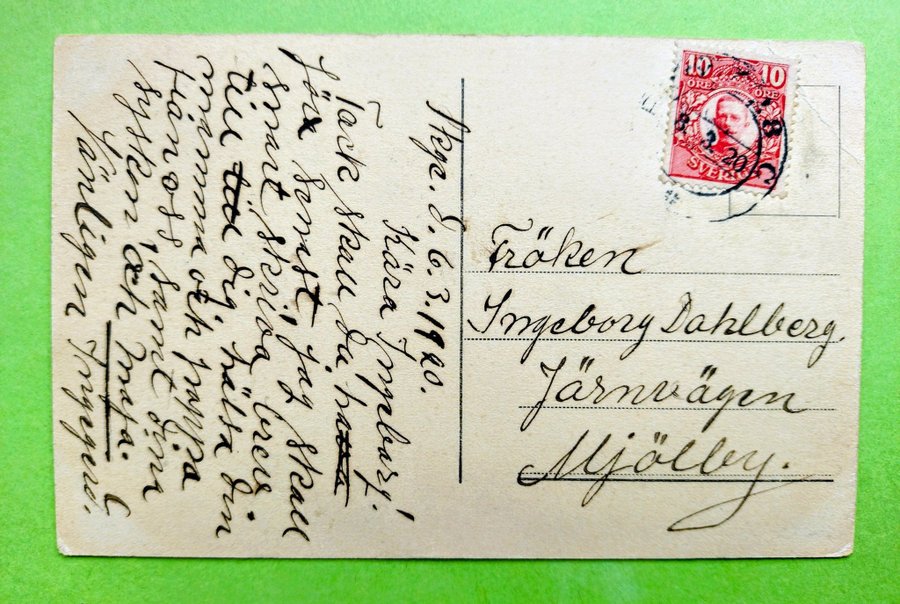 d. 6.3.1920.
Kära Ingeborg!
Tack skall Du ha
för senast, jag skall
snart skriva brev
till dig hälsa din
mamma och pappa
från oss, samt dina
sysken och
Vänligen Ingegerd.
10 10
ÖRE ÖRE
SVERIGE
8.3.20
Fröken
Ingeborg Dahlberg
Järnvägen
Mjölby.